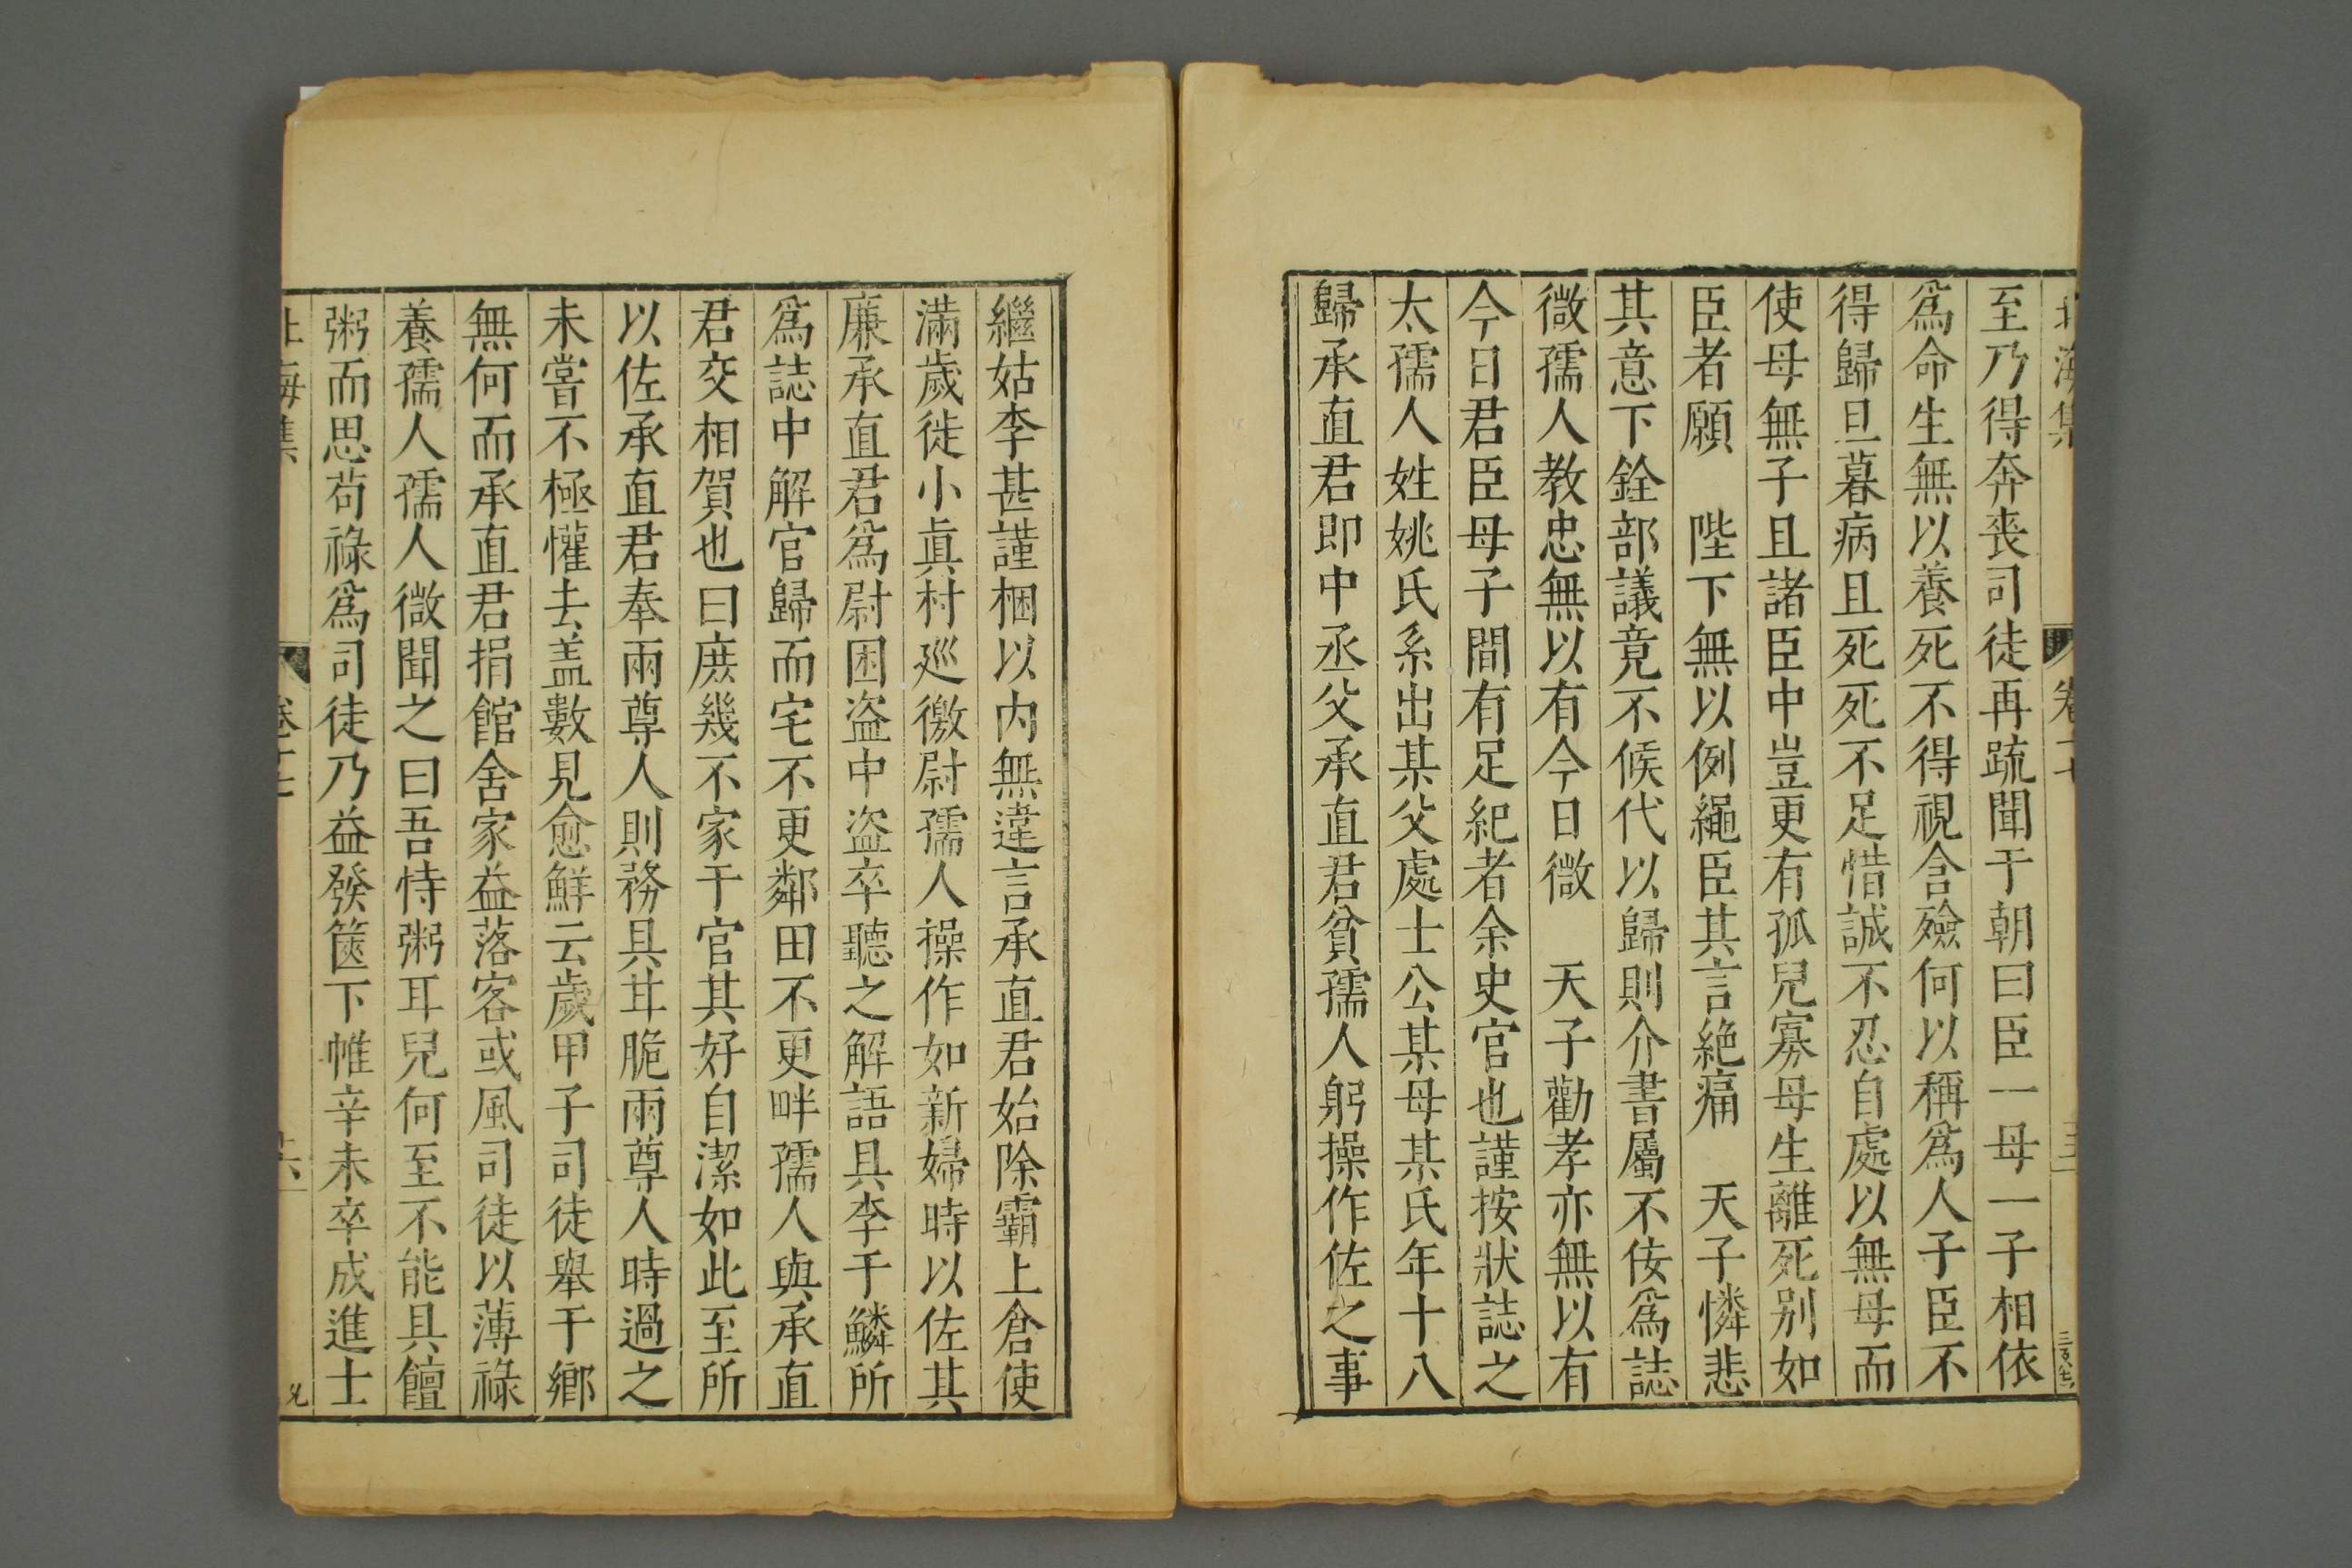 北海集 卷十七
至乃得奔喪司徒再疏聞于朝曰臣一母一子相依
爲命生無以養死不得視含殮何以稱爲人子臣不
得歸旦暮病且死死不足惜誠不忍自處以無母而
使母無子且諸臣中豈更有孤兒寡母生離死别如
臣者願　陛下無以例繩臣其言絶痛　天子憐悲
其意下銓部議竟不候代以歸則介書屬不佞爲誌
微孺人教忠無以有今日微　天子勸孝亦無以有
今日君臣母子間有足紀者余史官也謹按狀誌之
太孺人姓姚氏系出某父處士公某母某氏年十八
歸承直君即中丞父承直君貧孺人躬操作佐之事
繼姑李甚謹梱以内無違言承直君始除霸上倉使
滿歲徙小眞村廵徼尉孺人操作如新婦時以佐其
廉承直君爲尉困盗中盗卒聽之解語具李于鱗所
爲誌中解官歸而宅不更鄰田不更畔孺人與承直
君交相賀也曰庶幾不家干官其好自潔如此至所
以佐承直君奉兩尊人則務具甘脆兩尊人時過之
未嘗不極懽去盖數見愈鮮云歲甲子司徒舉于鄉
無何而承直君捐館舍家益落客或風司徒以薄祿
養孺人孺人微聞之曰吾恃粥耳兒何至不能具饘
粥而思苟祿爲司徒乃益發篋下帷辛未卒成進士
北海集 卷十七